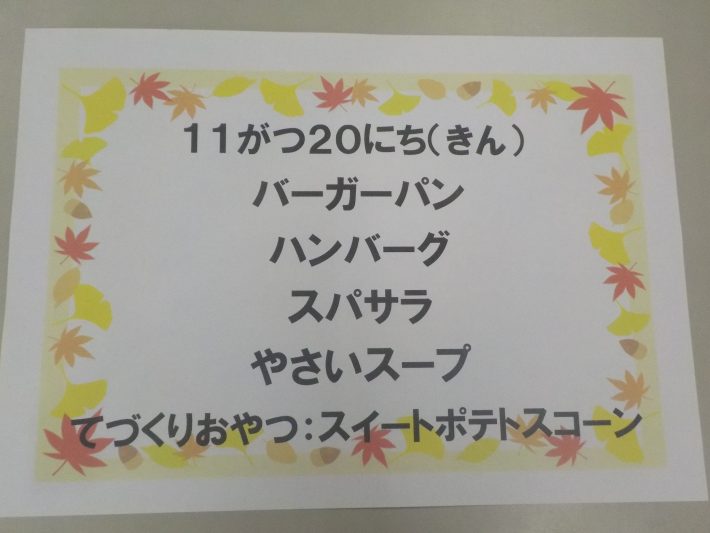 11がつ20にち(きん)
バーガーパン
ハンバーグ
スパサラ
やさいスープ
てづくりおやつ:スイートポテトスコーン